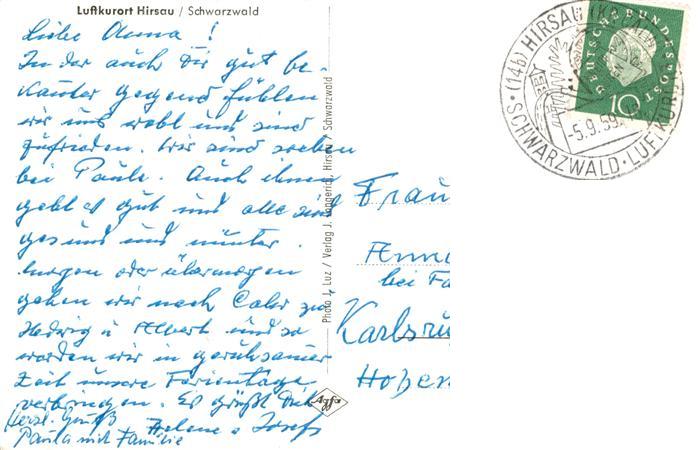 Luftkurort Hirsau / Schwarzwald
Liebe Anna!
In der auch Dir gut be-
kannter Gegend fühlen
wir uns wohl und sind
zufrieden. Wir sind soeben
bei Paula. Auch ihnen
geht es gut und alle sind
gesund und munter.
Morgen oder übermorgen
gehen wir nach Calw zu
Hedwig u Albert und so
werden wir in geruhsamer
Zeit unsere Ferientage
verbringen. Es grüßt Dich
Helene u Josefs
Herzl. Grüße
Paula mit Familie
Photo J. Luz / Verlag J. Hirsau / Schwarzwald
Agfa
Frau
Anna
bei Fa
Karlsru
Hohen
DEUTSCHE BUNDESPOST
10
(14b) HIRSAU
-5.9.59
SCHWARZWALD · LUFTKURORT